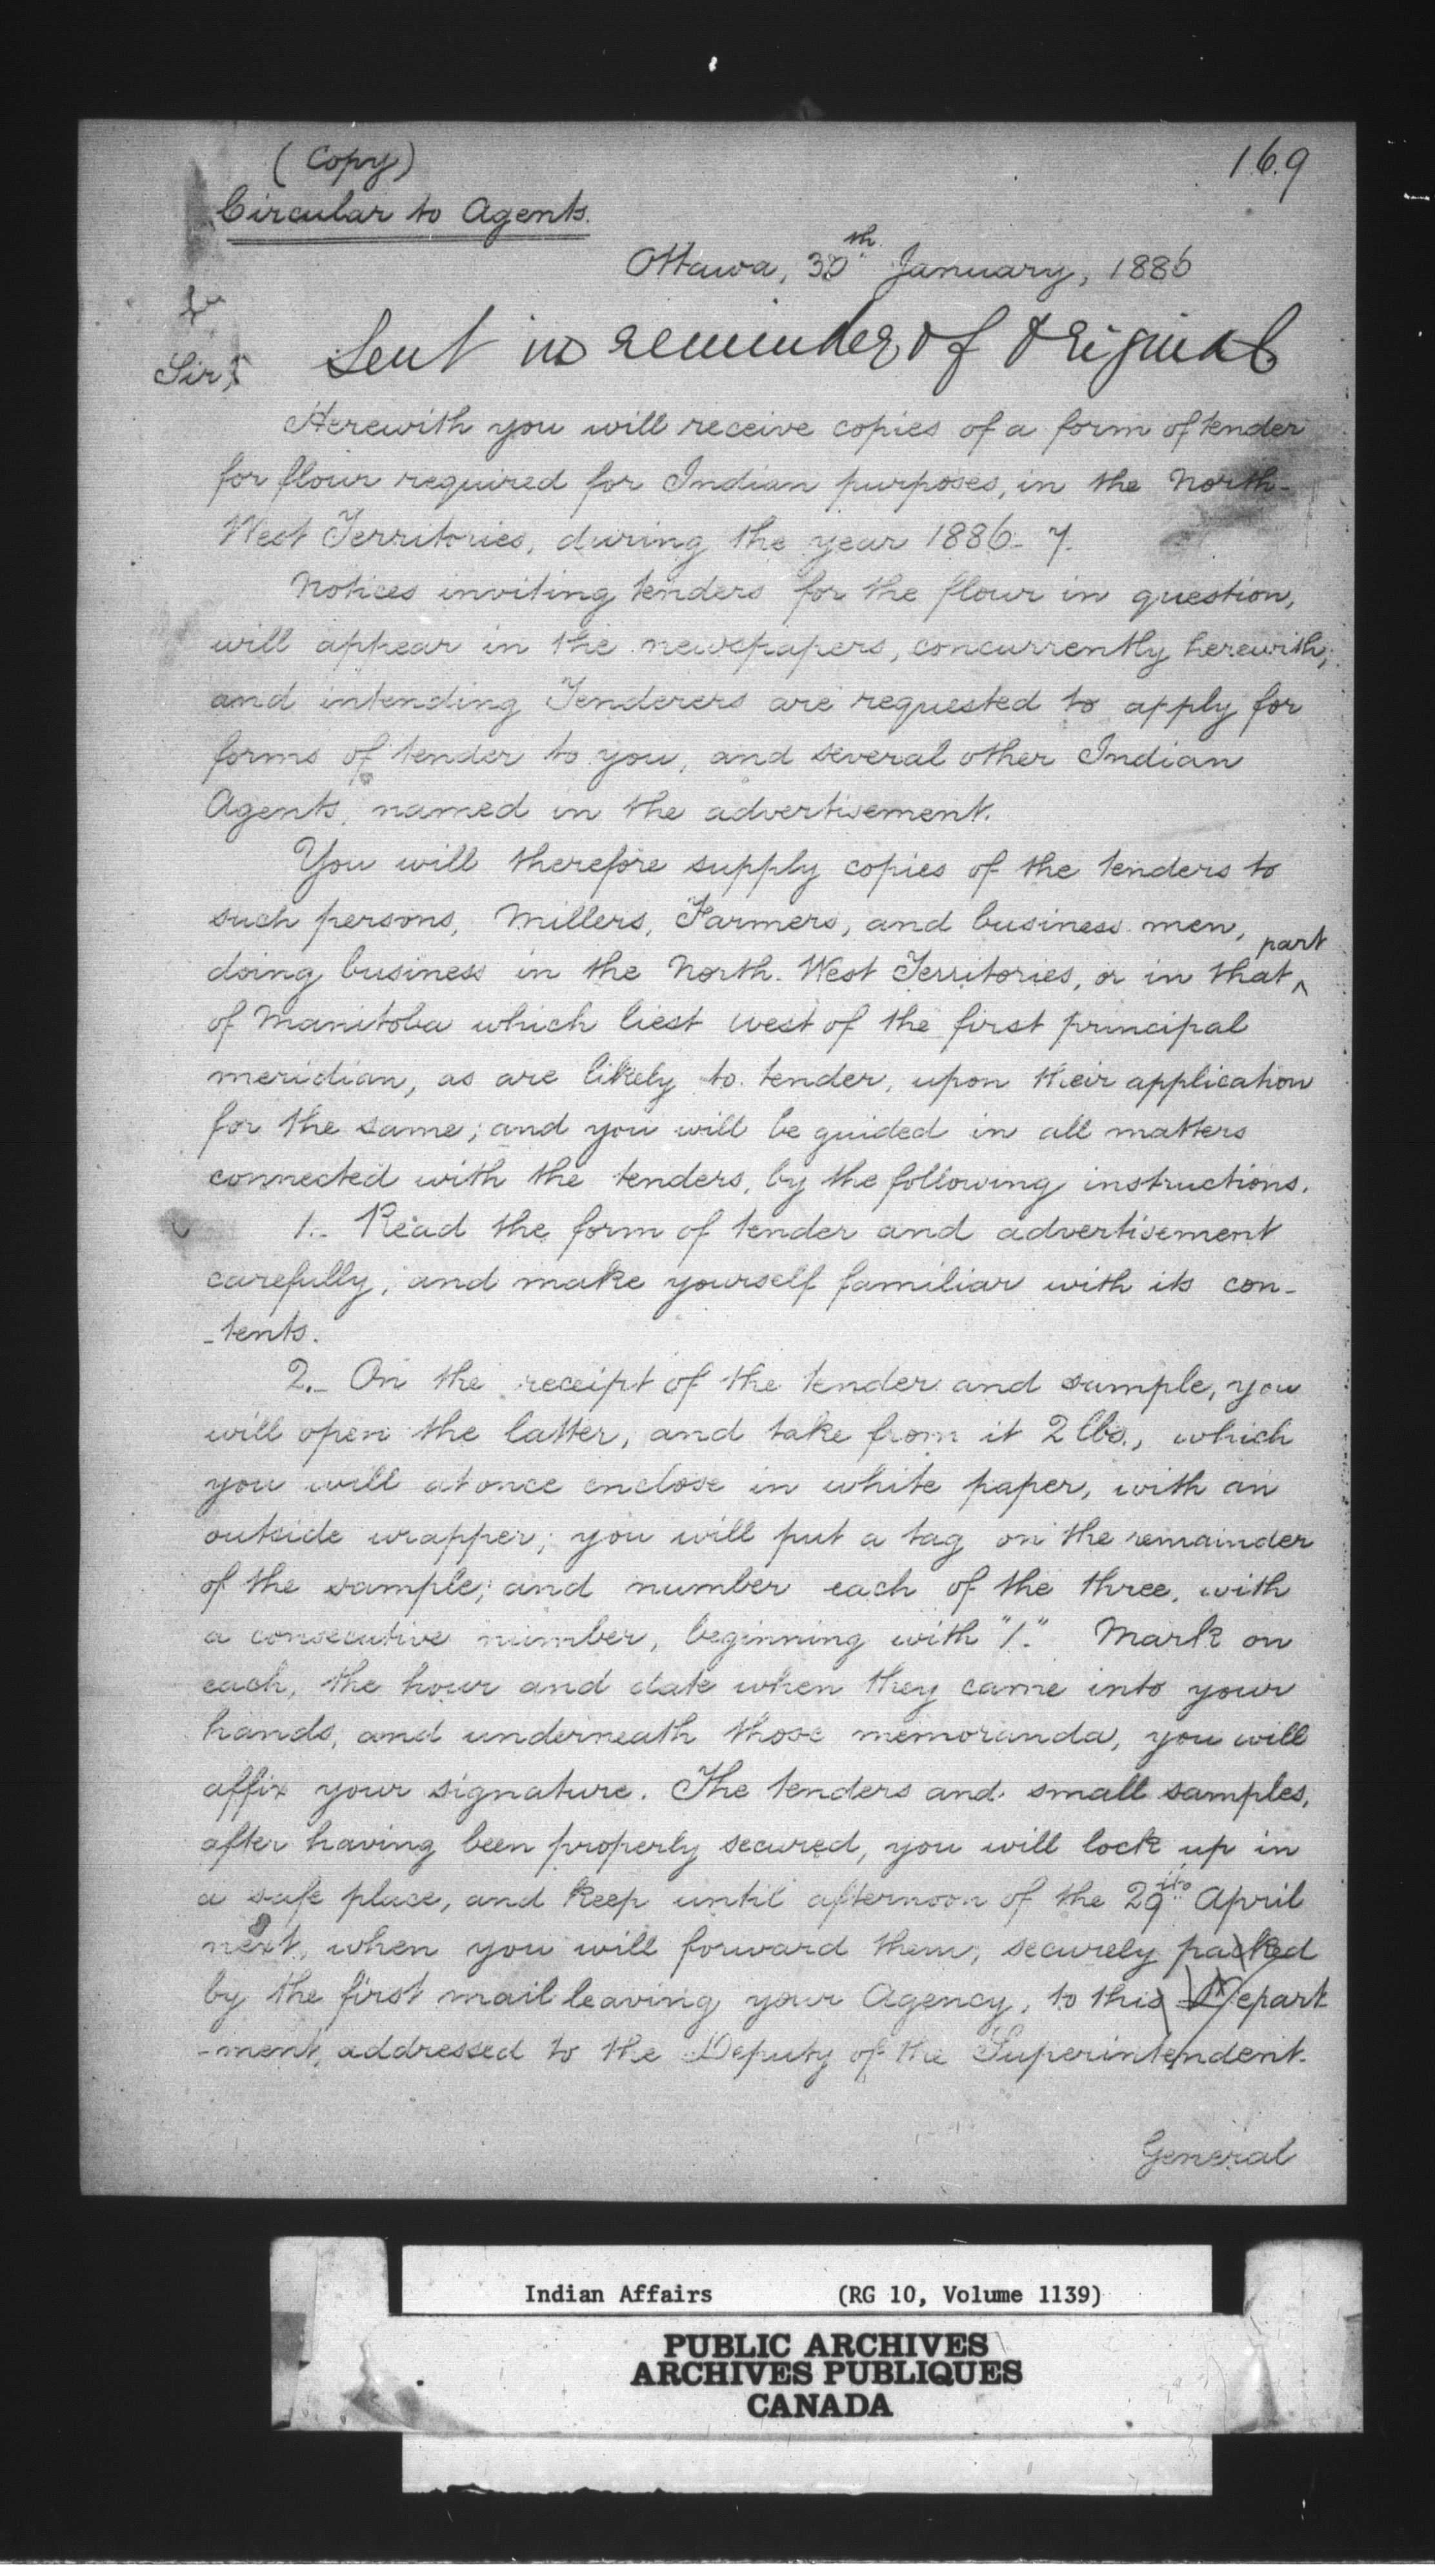 169
(Copy)
Circular to Agents.
Ottawa, 30th January, 1886
Sent in reminder of original
Sir,
Herewith you will receive copies of a form of tender
for flour required for Indian purposes, in the North-
West Territories, during the year 1886-7.
Notices inviting tenders for the flour in question,
will appear in the newspapers, concurrently herewith;
and intending Tenderers are requested to apply for
forms of tender to you, and several other Indian
Agents, named in the advertisement.
You will therefore supply copies of the tenders to
such persons, Millers, Farmers, and business men,
doing business in the North-West Territories, or in that part
of Manitoba which liest west of the first principal
meridian, as are likely to tender, upon their application
for the same; and you will be guided in all matters
connected with the tenders, by the following instructions.
1.- Read the form of tender and advertisement
carefully, and make yourself familiar with its con-
-tents.
2.- On the receipt of the tender and sample, you
will open the latter, and take from it 2 lbs., which
you will at once enclose in white paper, with an
outside wrapper; you will put a tag on the remainder
of the sample; and number each of the three, with
a consecutive number, beginning with "1." Mark on
each, the hour and date when they came into your
hands, and underneath those memoranda, you will
affix your signature. The tenders and small samples,
after having been properly secured, you will lock up in
a safe place, and keep until afternoon of the 29th April
next, when you will forward them, securely packed
by the first mail leaving your Agency, to this Depart
-ment, addressed to the Deputy of the Superintendent-
General
Indian Affairs (RG 10, Volume 1139)
PUBLIC ARCHIVES
ARCHIVES PUBLIQUES
CANADA